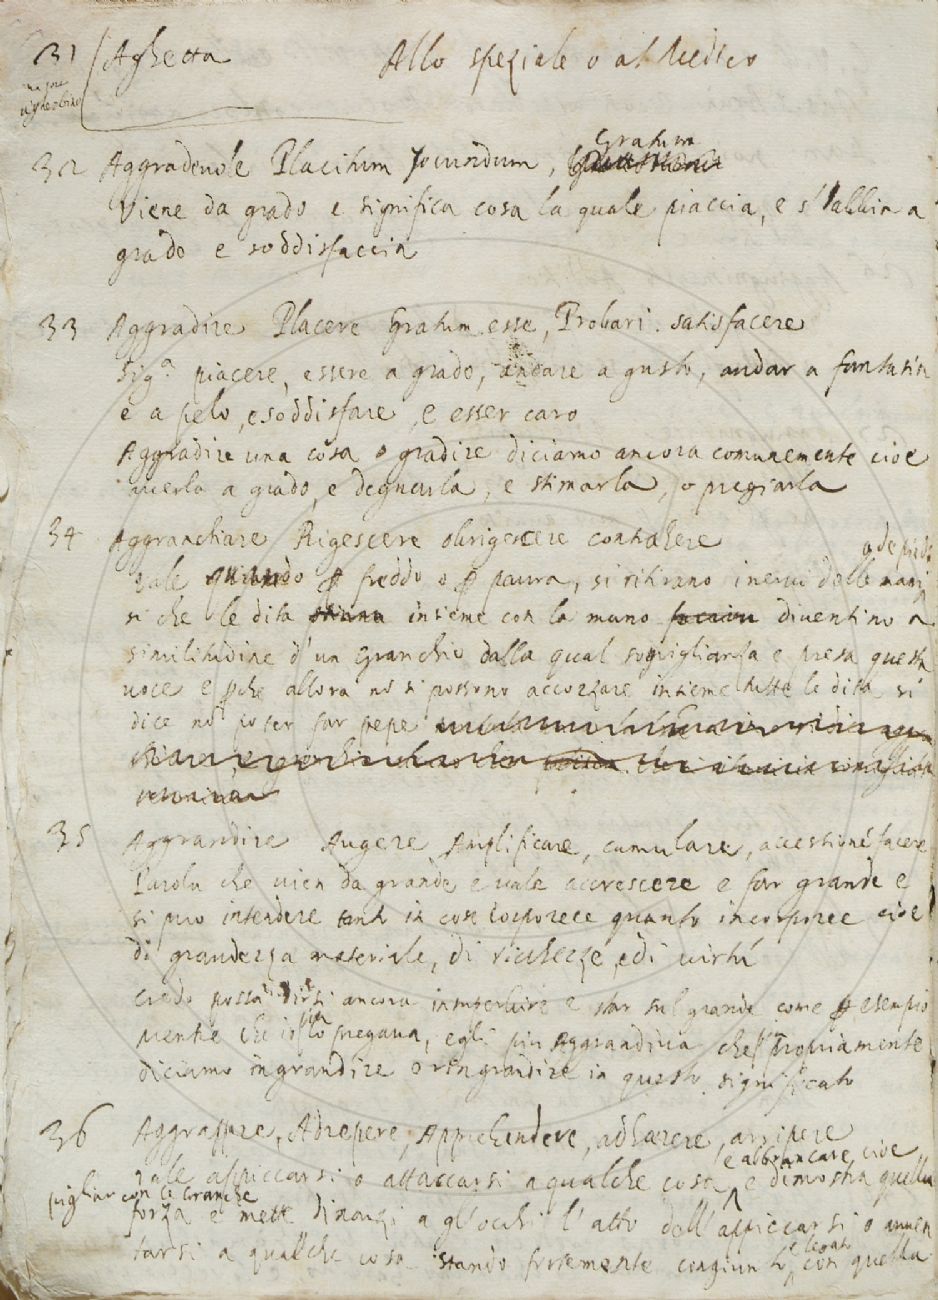 31 Aghetta Allo speziale o al Medico
32 Aggradevole Placitum Jocundum, Gratum
Viene da grado e significa cosa la quale piaccia, e s'habbia a
grado e soddisfaccia
33 Aggradire Placere Gratum esse, Probari. satisfacere
Sig.a piacere, essere a grado, andare a gusto, andar a fantasia
e a pelo, e soddisfare, e esser caro
Aggradire una cosa o gradire diciamo ancora comunemente cioe
averla a grado, e degnarla, e stimarla, o pregiarla
34 Aggranchiare Rigescere obrigescere contrahere
o de piedi
vale quando p freddo o p paura, si ritirano i nerui delle mani
si che le dita insieme con la mano diventino a
similitudine d'un Granchio dalla qual somiglianza e presa questa
uoce e pche allora no si possono accozzare insieme tutte le dita si
dice no poter far pepe
35 Aggrandire Augere Amplificare, cumulare, accessione facere
Parola che uien da grande e uale accrescere e far grande e
si puo intendere tanto in cose corporee quanto incorporee cioe
di grandezza materiale, di ricchezze, e di uirtù
credo possa dirsi ancora insuperbire e star sul grande come p esempio
mentre che io piu lo pregaua, egli piu Aggrandiua che piu propriamente
diciamo ingrandire o ringrandire in questo significato
36 Aggrappare, Adrepere, Apprehendere, adhærere, arripere
e abbrancare, cioe
vale appiccarsi o attaccarsi a qualche cosa, e dimostra quella
pigliar con le branche
forza e mette dinanzi a gl'occhi l'atto dell'appiccarsi o auuen
tarsi a qualche cosa stando fortemente congiunto e legato con quella